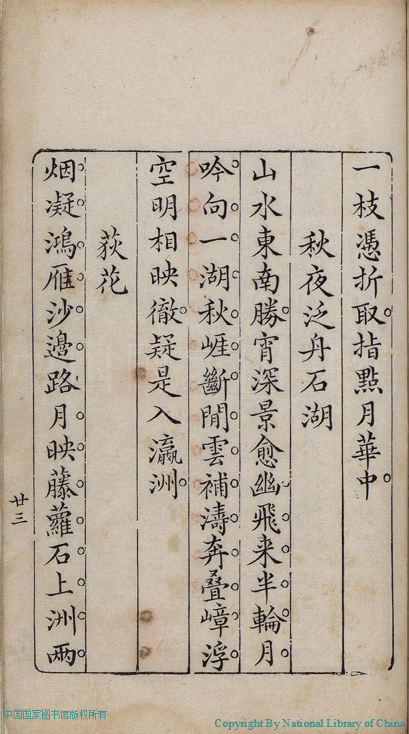 一枝憑折取指點月華中
秋夜泛舟石湖
山水東南勝宵深景愈幽飛来半輪月
吟向一湖秋崕斷閒雲補濤奔叠嶂浮
空明相映徹疑是入瀛洲
荻花
烟凝鴻雁沙邊路月映藤蘿石上洲兩
廿三
中国国家图书馆版权所有
Copyright By National Library of China